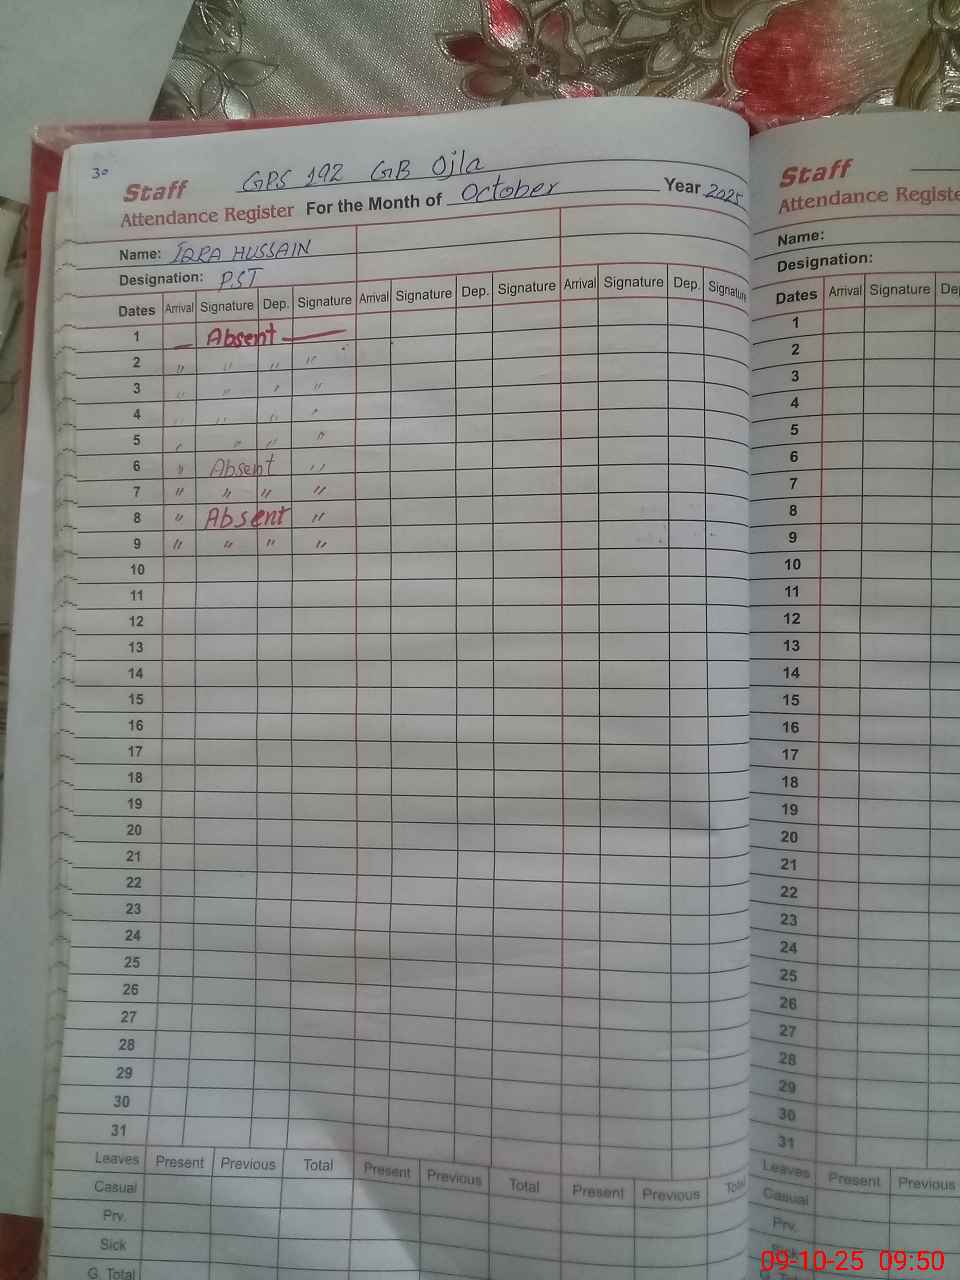 30
Staff GPS 192 GB Ojla
Attendance Register For the Month of October Year 2025
Name: IQRA HUSSAIN
Designation: PST
Dates Arrival Signature Dep. Signature Arrival Signature Dep. Signature Arrival Signature Dep. Signature
1 — Absent —
2 〃 〃 〃 〃
3 〃 〃 〃 〃
4 〃 〃 〃 〃
5 〃 〃 〃 〃
6 〃 Absent 〃
7 〃 〃 〃 〃
8 〃 Absent 〃
9 〃 〃 〃 〃
10
11
12
13
14
15
16
17
18
19
20
21
22
23
24
25
26
27
28
29
30
31
Leaves Present Previous Total Present Previous Total Present Previous Total
Casual
Prv.
Sick
G. Total
Staff
Attendance Registe
Name:
Designation:
Dates Arrival Signature De
1
2
3
4
5
6
7
8
9
10
11
12
13
14
15
16
17
18
19
20
21
22
23
24
25
26
27
28
29
30
31
Leaves Present Previous
Casual
Prv.
Sick
09-10-25 09:50